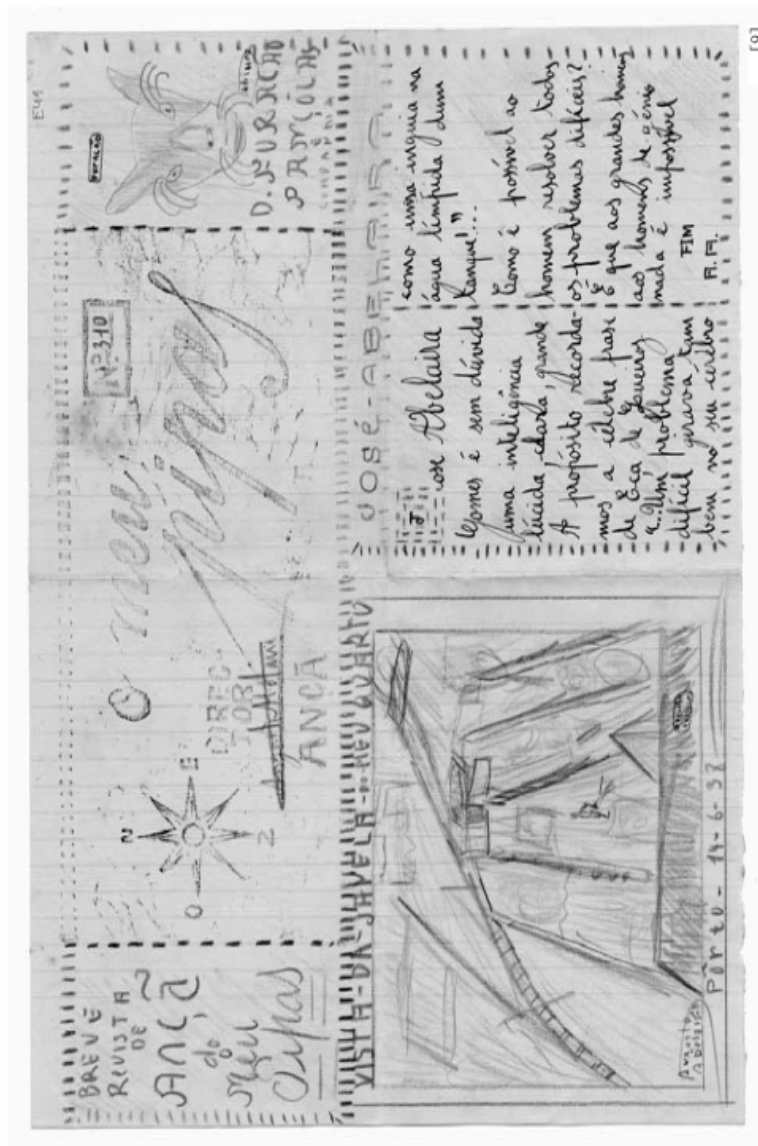 BREVE
REVISTA
DE
ANÇÃ
do
Meu
Pipas
O meu
pipas
Nº 310
N
O
E
DIREC
TOR
ANÇÃ
E41
D. FURACÃO
PANÇOLAS
COMPANHIA
VISTA-DA-JANELA-MEU QUARTO
Augusto
Abelaira
Pôrto - 14-6-38
JOSÉ-ABELAIRA
José Abelaira
Gomes é sem dúvida
uma inteligência
lúcida clara, grande
A propósito recorda-
mos a célebre frase
de Eça de Queiroz
"...Um problema
difícil girava tam
bem no seu cérebro
como uma inguia na
água límpida dum
tanque!..."
Como é possível ao
homem resolver todos
os problemas difíceis?
É que aos grandes homens
aos homens de génio
nada é impossível
FIM
A.A.